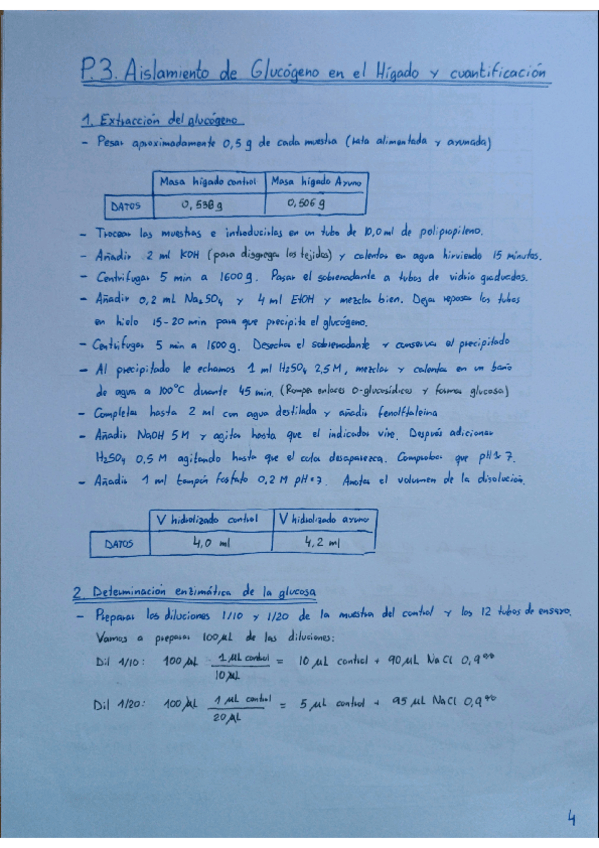 P.3. Aislamiento de Glucógeno en el Hígado y cuantificación
1. Extracción del glucógeno
- Pesar aproximadamente 0,5 g de cada muestra (rata alimentada y ayunada)
Masa hígado control Masa hígado Ayuno
DATOS 0,538 g 0,506 g
- Trocear las muestras e introducirlas en un tubo de 10,0 ml de polipropileno.
- Añadir 2 ml KOH (para disgregar los tejidos) y calentar en agua hirviendo 15 minutos.
- Centrifugar 5 min a 1600 g. Pasar el sobrenadante a tubos de vidrio graduados.
- Añadir 0,2 mL Na₂SO₄ y 4 ml EtOH y mezclar bien. Dejar reposar los tubos
en hielo 15-20 min para que precipite el glucógeno.
- Centrifugar 5 min a 1600 g. Desechar el sobrenadante y conservar el precipitado
- Al precipitado le echamos 1 ml H₂SO₄ 2,5M, mezclar y calentar en un baño
de agua a 100°C durante 45 min. (Rompen enlaces O-glucosídicos y forman glucosa)
- Completar hasta 2 ml con agua destilada y añadir fenolftaleína
- Añadir NaOH 5M y agitar hasta que el indicador vire. Después adicionar
H₂SO₄ 0,5 M agitando hasta que el color desaparezca. Comprobar que pH 7.
- Añadir 1 ml tampón fosfato 0,2 M pH=7. Anotar el volumen de la disolución.
V hidrolizado control V hidrolizado ayuno
DATOS 4,0 ml 4,2 ml
2. Determinación enzimática de la glucosa
- Preparar las diluciones 1/10 y 1/20 de la muestra del control y los 12 tubos de ensayo.
Vamos a preparar 100 µL de las diluciones:
Dil 1/10: 100 µL 1 µL control / 10 µL = 10 µL control + 90 µL NaCl 0,9%
Dil 1/20: 100 µL 1 µL control / 20 µL = 5 µL control + 95 µL NaCl 0,9%
4